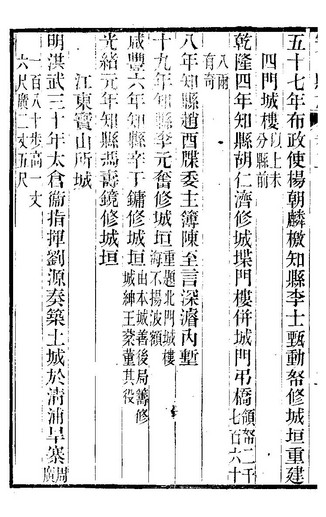 五十七年布政使楊朝麟檄知縣李士甄動帑修城垣重建
四門城樓以上未分縣前
乾隆四年知縣胡仁濟修城堞門樓併城門弔橋領帑二千七百六十
八兩有奇
八年知縣趙酉牒委主簿陳至言深濬內塹
十九年知縣李元奮修城垣重題北門城樓海不揚波額
咸豐六年知縣辛丁鏞修城垣由本城善後局籌修城紳王蒙董其役
光緒元年知縣馮壽鏡修城垣
江東寶山所城
明洪武三十年太倉衞指揮劉源奏築土城於清浦旱寨周廣
一百八十步高一丈六尺廣二丈五尺